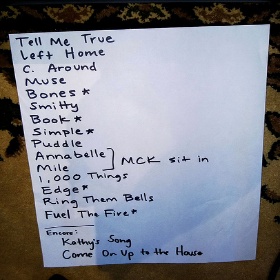 Tell Me True
Left Home
C. Around
Muse
Bones *
Smitty
Book *
Simple *
Puddle
Annabelle
Mile ] MCK sit in
1,000 Things
Edge *
Ring Them Bells
Fuel The Fire *
Encore:
Kathy's Song
Come On Up to the House